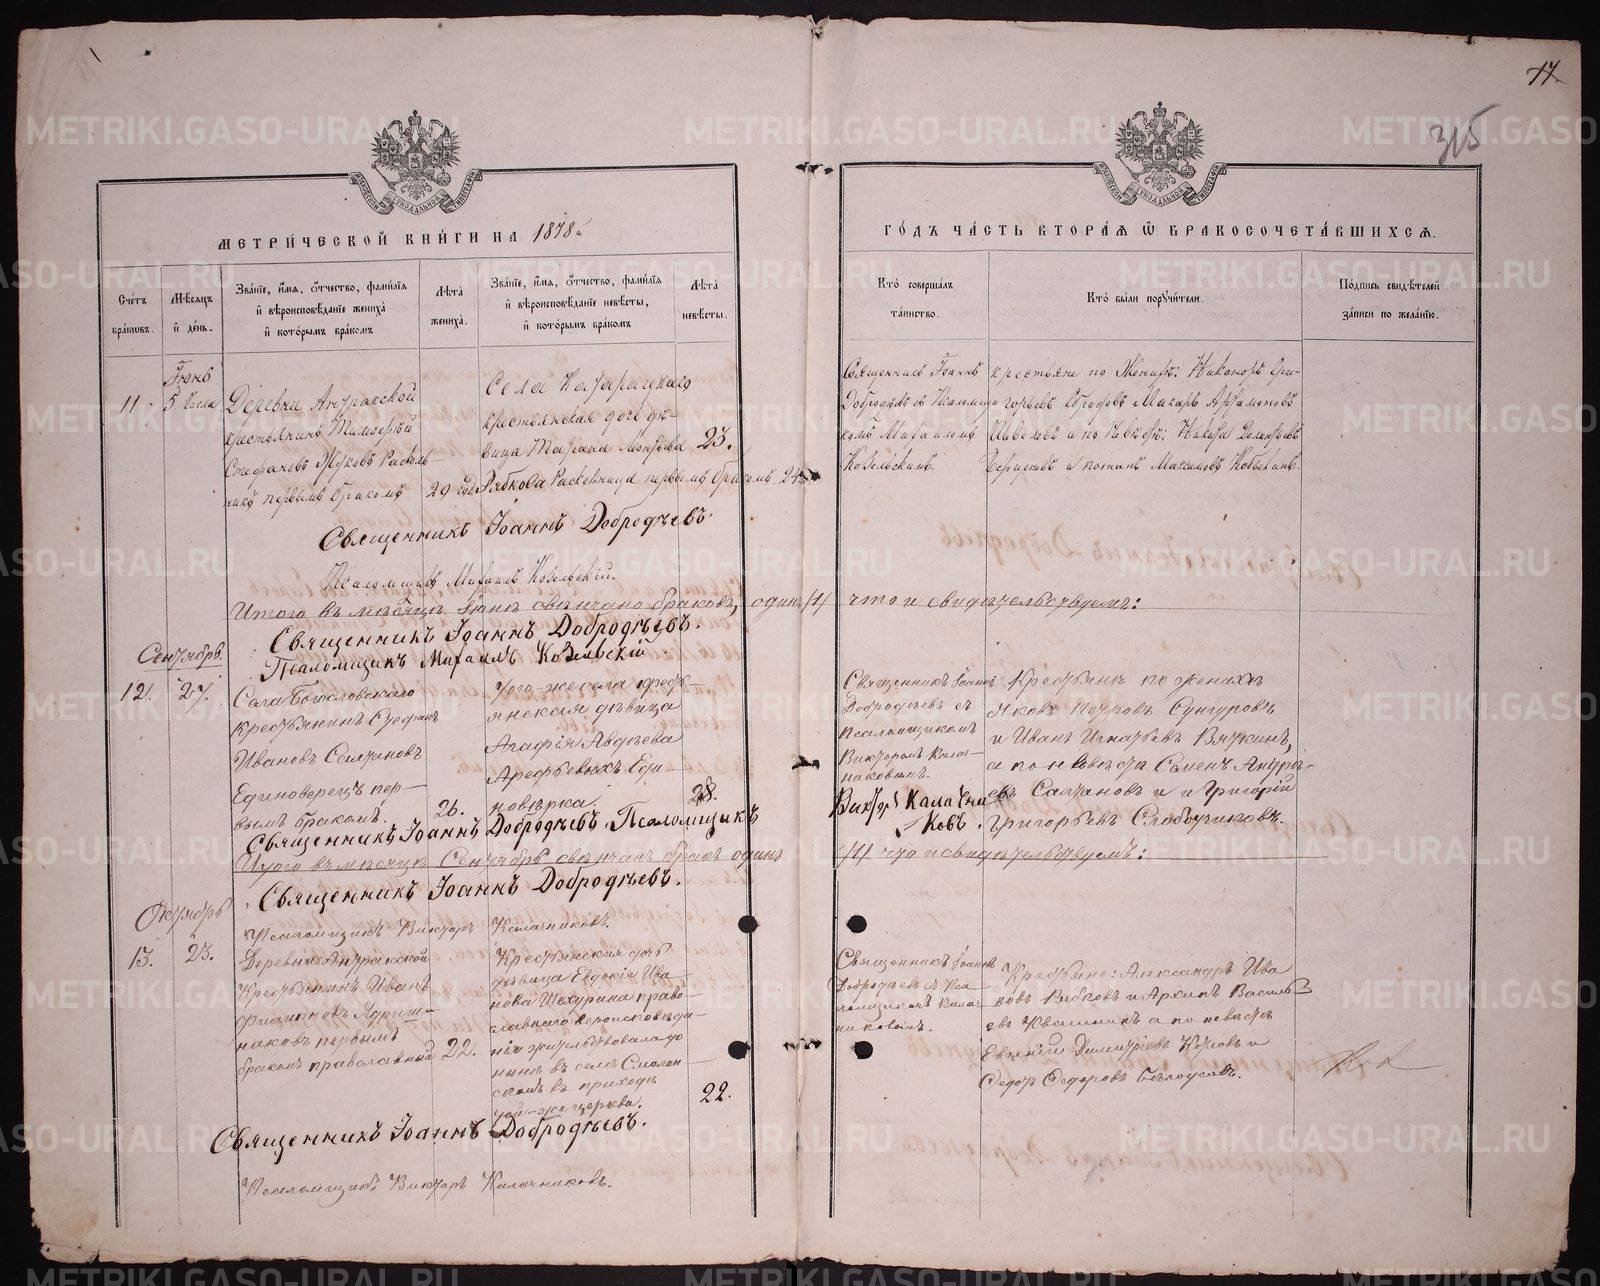 17
315
МЕТРИЧЕСКОЙ КНИГИ НА 1878 й
ГОДЪ ЧАСТЬ ВТОРАЯ Ѿ БРАКОСОЧЕТАВШИХСЯ.
Счетъ браковъ.
Мѣсяцъ и день.
Званіе, имя, отчество, фамилія
и вѣроисповѣданіе жениха
и которымъ бракомъ
Лѣта жениха.
Званіе, имя, отчество, фамилія
и вѣроисповѣданіе невѣсты,
и которымъ бракомъ
Лѣта невѣсты.
Кто совершалъ таинство.
Кто были поручители.
Подпись свидѣтелей записи по желанію.
Іюнь
11
5 числа
Деревни
крестьянинъ Тимофей
Стефановъ Жуковъ Расколь-
никъ первымъ бракомъ
29
Села
крестьянская дочь дѣ-
вица Татіана
Рябкова Расколница первымъ бракомъ
23.
24
Священникъ Іоаннъ
Добродѣевъ съ Псаломщи
комъ Михаиломъ
Козельскимъ.
крестьяне по Женихѣ: Никаноръ Гри-
горьевъ Макаръ Артамоновъ
и по Невѣстѣ: Никита
Максимовъ
Священникъ Іоаннъ Добродѣевъ.
Псаломщикъ Михаилъ Козельскій.
Итого въ мѣсяцѣ Іюнѣ свѣнчано браковъ, одинъ /1/ что и свидѣтельствуемъ:
Священникъ Іоаннъ Добродѣевъ.
Псаломщикъ Михаилъ Козельскій
Сентябрь.
12.
27.
Села Богословскаго
крестьянинъ Стефанъ
Ивановъ Салтановъ
Единоверецъ пер-
вымъ бракомъ.
26.
того-же села крест-
янская дѣвица
Агафія Авдѣева
Арефьевыхъ Еди-
новѣрка.
28.
Священникъ Іоаннъ
Добродѣевъ съ
псаломщикомъ
Викторомъ Калач-
никовымъ.
Крестьяне по женихѣ
Яковъ Петровъ Сунгуровъ
и Иванъ Игнатьевъ Вяткинъ,
а по невѣстѣ Семенъ Андре-
евъ Салтановъ и Григорій
Григорьевъ Слободчиковъ.
Священникъ Іоаннъ Добродѣевъ. Псаломщикъ Викторъ Калачни
ковъ.
Итого въ мѣсяцѣ Сентябрѣ свѣнчанъ бракъ одинъ /1/ что и свидѣтельствуемъ:
Священникъ Іоаннъ Добродѣевъ.
Псаломщикъ Викторъ Калачниковъ.
Октябрь
13.
23.
Деревни
Крестьянинъ Иванъ
Филиповъ
никовъ первымъ
бракомъ православный
22.
Крестьянская дочь
дѣвица Евдокія Ива-
нова Шехурина право-
славнаго вероисповѣда-
нія жительствовала до
нынѣ въ селѣ Смолин-
скомъ въ приходѣ
той-же церкви.
22.
Священникъ Іоаннъ
Добродѣевъ съ Пса-
ломщикомъ Калач-
никовымъ.
Крестьяне: Александръ Ива
новъ Рябковъ и Архипъ Василь
евъ Квашнинъ а по невѣстѣ
Евгеній Димитріевъ Козловъ и
Федоръ Федоровъ Бѣлоусовъ.
Священникъ Іоаннъ Добродѣевъ.
Псаломщикъ Викторъ Калачниковъ.
METRIKI.GASO-URAL.RU